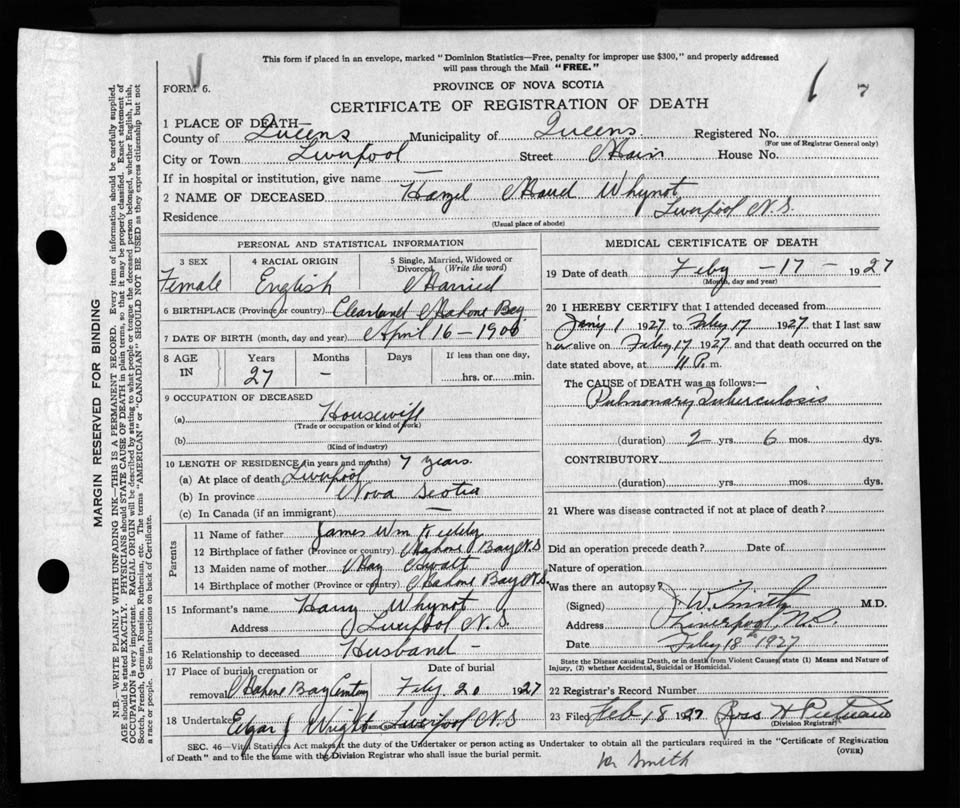 This form if placed in an envelope, marked "Dominion Statistics—Free, penalty for improper use $300," and properly addressed
will pass through the Mail "FREE."
FORM 6.
PROVINCE OF NOVA SCOTIA
CERTIFICATE OF REGISTRATION OF DEATH
1 PLACE OF DEATH—
County of Queens Municipality of Queens Registered No.
(For use of Registrar General only)
City or Town Liverpool Street Main House No.
If in hospital or institution, give name —
2 NAME OF DECEASED Hazel Maud Whynot
Residence Liverpool N.S.
(Usual place of abode)
PERSONAL AND STATISTICAL INFORMATION
3 SEX 4 RACIAL ORIGIN 5 Single, Married, Widowed or
Divorced (Write the word)
Female English Married
6 BIRTHPLACE (Province or country) Clearland Mahone Bay
7 DATE OF BIRTH (month, day and year) April 16 - 1900
8 AGE IN Years Months Days If less than one day,
27 — hrs. or min.
9 OCCUPATION OF DECEASED
(a) Housewife
(Trade or occupation or kind of work)
(b)
(Kind of industry)
10 LENGTH OF RESIDENCE (in years and months) 7 years.
(a) At place of death Liverpool
(b) In province Nova Scotia
(c) In Canada (if an immigrant) —
Parents
11 Name of father James Wm
12 Birthplace of father (Province or country) Mahone Bay N.S
13 Maiden name of mother May
14 Birthplace of mother (Province or country) Mahone Bay N.S.
15 Informant's name Harry Whynot
Address Liverpool N.S.
16 Relationship to deceased Husband -
17 Place of burial, cremation or removal Date of burial
Mahone Bay Cemetery Feby. 20 1927
18 Undertaker Edgar J Wright Liverpool N.S
MEDICAL CERTIFICATE OF DEATH
19 Date of death Feby - 17 - 1927
(Month, day and year)
20 I HEREBY CERTIFY that I attended deceased from
Jan'y 1 1927 to Feby 17 1927 that I last saw
her alive on Feby 17 1927 and that death occurred on the
date stated above, at 11 P. m.
The CAUSE OF DEATH was as follows:—
Pulmonary Tuberculosis
(duration) 2 yrs. 6 mos. dys.
CONTRIBUTORY
(duration) yrs. mos. dys.
21 Where was disease contracted if not at place of death?
Did an operation precede death? Date of
Nature of operation
Was there an autopsy?
(Signed) J W Smith M.D.
Address Liverpool, N.S.
Date Feby 18th 1927
State the Disease causing Death, or in death from Violent Causes, state (1) Means and Nature of
Injury, (2) whether Accidental, Suicidal or Homicidal.
22 Registrar's Record Number
23 Filed Feb 18 1927 H Putnam
(Division Registrar)
SEC. 46—Vital Statistics Act makes it the duty of the Undertaker or person acting as Undertaker to obtain all the particulars required in the "Certificate of Registration
of Death" and to file the same with the Division Registrar who shall issue the burial permit. (OVER)
Dr Smith
MARGIN RESERVED FOR BINDING
N.B. WRITE PLAINLY WITH UNFADING INK—THIS IS A PERMANENT RECORD. Every item of information should be carefully supplied.
AGE should be stated EXACTLY. PHYSICIANS should STATE CAUSE OF DEATH in plain terms, so that it may be properly classified. Exact statement of
OCCUPATION is very important. RACIAL ORIGIN will be described by stating to what people or tongue the deceased person belonged, whether English, Irish,
Scotch, French, German, Russian, Ruthenian, etc. The terms "AMERICAN" or "CANADIAN" SHOULD NOT BE USED as they express citizenship but not
a race or people. See instructions on back of Certificate.